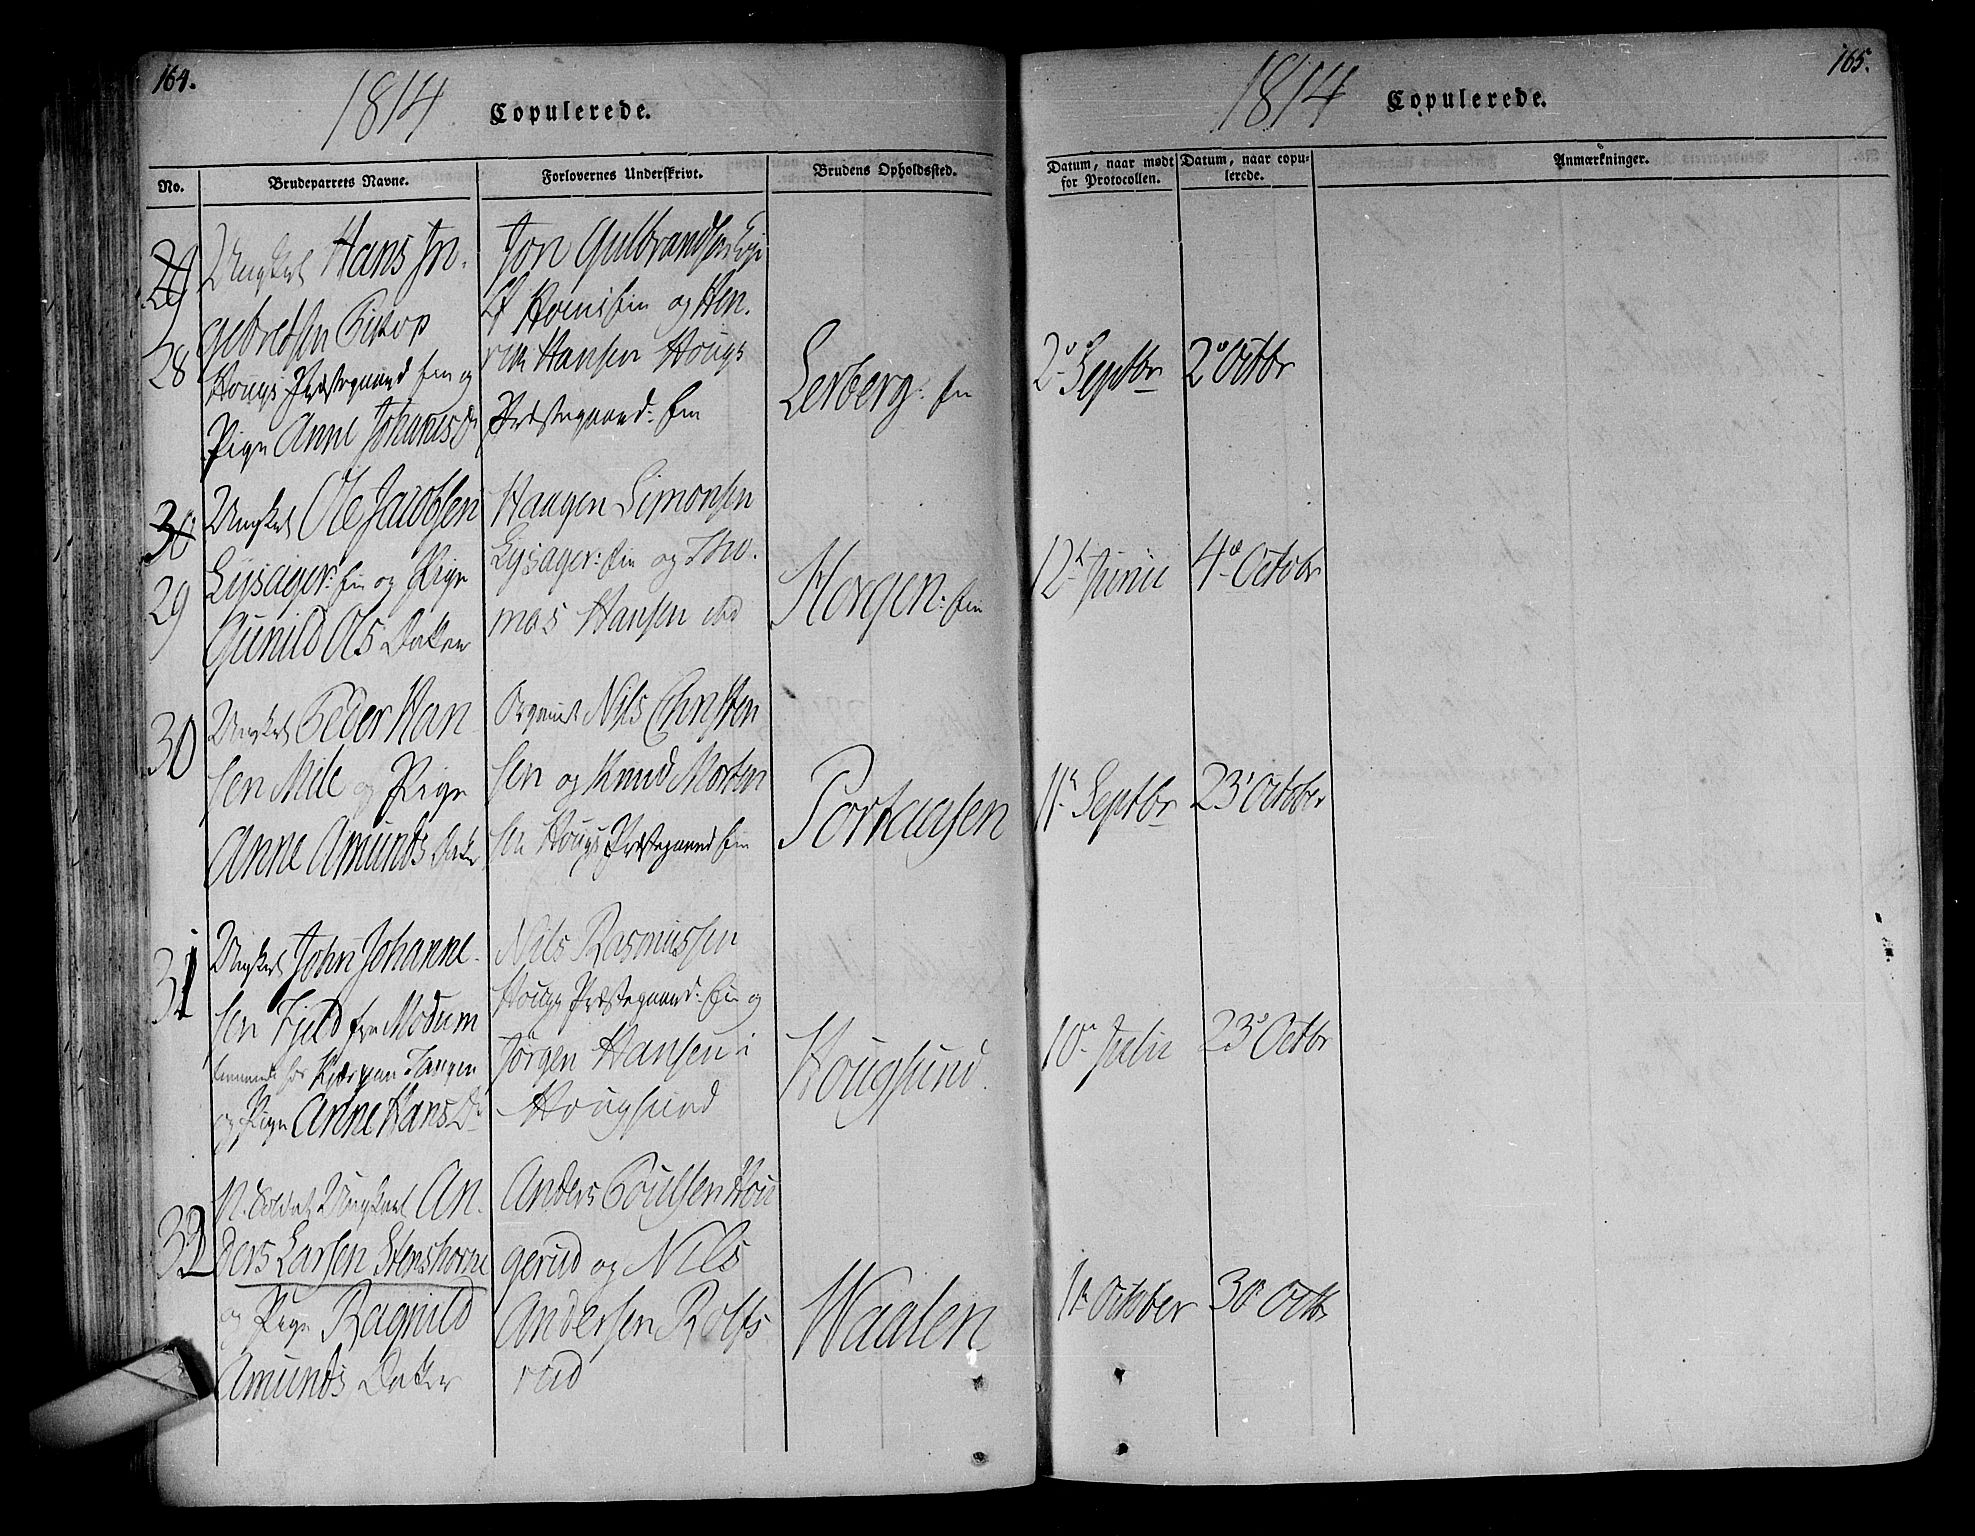 164.
1814
Copulerede.
No.
Brudeparrets Navne.
Forlovernes Underskrivt.
Brudens Opholdssted.
29
28
Ungkarl Hans In-
gebretsen Biskop
Hougs Præstegaard Eie og
Pige Anne Johannes D
Jon Gulbrandsen
Hornseie og Hen-
rik Hansen Hougs
Præstegaard: Eie
Lerberg: Eie
30
29
Ungkarl Ole Jacobsen
Lijsager: Eie og Pige
Gunild Ols Datter
Haagen Simonsen
Lijsager: Eie og Tho-
mas Hansen ibd
Horgen: Eie
30
Ungkarl Peder Han
sen Mile og Pige
Anne Amunds Datter
Nils Christen
sen og Knud Morten
sen Hougs Præstegaard Eie
Portaasen
31
Ungkarl John Johanne-
sen Fjeld fra Modum
og Pige Anne Hans D
Nils Rasmussen
Hougs Præstegaard: Eie og
Jørgen Hansen i
Hougsund
Hougsund.
32
N. Soldat Ungkarl An-
ders Larsen Stenshorne
og Pige Ragnild
Amunds Datter
Anders Poulsen Hou
gerud og Nils
Andersen Rolfs
rud
Waalen
165.
1814
Copulerede.
Datum, naar mødt
for Protocollen.
Datum, naar copu-
lerede.
Anmærkninger.
2 Septbr
2 Octbr
12 Junii
4 Octobr
11 Septbr
23 October
10 Julii
23 Octbr
1 October
30 Octbr